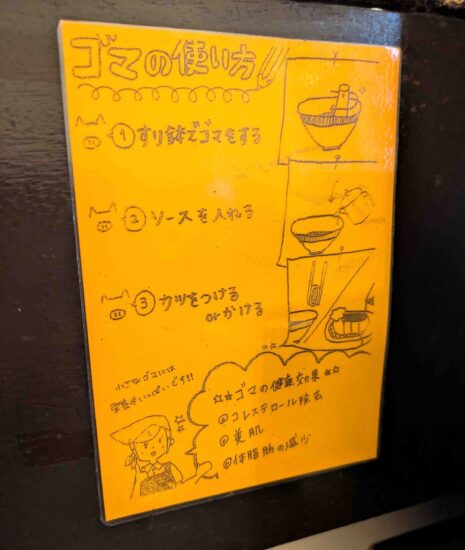 ゴマの使い方
① すり鉢でゴマをする
② ソースを入れる
③ カツをつける
orかける
小さなゴマには
栄養がいっぱいです!!
☆★ゴマの健康効果★☆
@コレステロール除去
@美肌
@体脂肪の減少